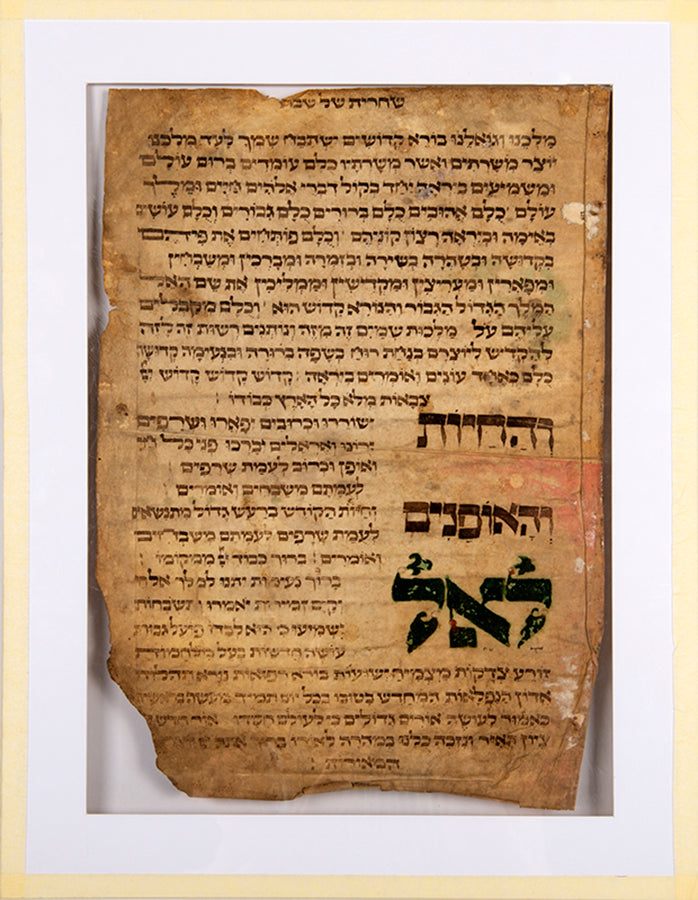 שחרית של שבת
מַלְכֵּנוּ וְגוֹאֲלֵנוּ בּוֹרֵא קְדוֹשִׁים יִשְׁתַּבַּח שִׁמְךָ לָעַד מַלְכֵּנוּ
יוֹצֵר מְשָׁרְתִים וַאֲשֶׁר מְשָׁרְתָיו כֻּלָּם עוֹמְדִים בְּרוּם עוֹלָם
וּמַשְׁמִיעִים בְּיִרְאָה יַחַד בְּקוֹל דִּבְרֵי אֱלֹהִים חַיִּים וּמֶלֶךְ
עוֹלָם כֻּלָּם אֲהוּבִים כֻּלָּם בְּרוּרִים כֻּלָּם גִּבּוֹרִים וְכֻלָּם עוֹשִׂים
בְּאֵימָה וּבְיִרְאָה רְצוֹן קוֹנֵיהֶם וְכֻלָּם פּוֹתְחִים אֶת פִּיהֶם
בִּקְדוּשָׁה וּבְטָהֳרָה בְּשִׁירָה וּבְזִמְרָה וּמְבָרְכִין וּמְשַׁבְּחִין
וּמְפָאֲרִין וּמַעֲרִיצִין וּמַקְדִּישִׁין וּמַמְלִיכִין אֶת שֵׁם הָאֵל
הַמֶּלֶךְ הַגָּדוֹל הַגִּבּוֹר וְהַנּוֹרָא קָדוֹשׁ הוּא וְכֻלָּם מְקַבְּלִים
עֲלֵיהֶם עֹל מַלְכוּת שָׁמַיִם זֶה מִזֶּה וְנוֹתְנִים רְשׁוּת זֶה לָזֶה
לְהַקְדִּישׁ לְיוֹצְרָם בְּנַחַת רוּחַ בְּשָׂפָה בְרוּרָה וּבִנְעִימָה קְדוֹשָׁה
כֻּלָּם כְּאֶחָד עוֹנִים וְאוֹמְרִים בְּיִרְאָה קָדוֹשׁ קָדוֹשׁ קָדוֹשׁ יְיָ
צְבָאוֹת מְלֹא כָל הָאָרֶץ כְּבוֹדוֹ
וְהַחַיּוֹת יְשׁוֹרְרוּ וּכְרוּבִים יְפָאֲרוּ וּשְׂרָפִים
יָרוֹנּוּ וְאֶרְאֵלִים יְבָרְכוּ פְּנֵי כָל
וְאוֹפָן וּכְרוּב לְעֻמַּת שְׂרָפִים
לְעֻמָּתָם מְשַׁבְּחִים וְאוֹמְרִים
וְהָאוֹפַנִּים וְחַיּוֹת הַקּוֹדֶשׁ בְּרַעַשׁ גָּדוֹל מִתְנַשְּׂאִים
לְעֻמַּת שְׂרָפִים לְעֻמָּתָם מְשַׁבְּחִים
וְאוֹמְרִים בָּרוּךְ כְּבוֹד יְיָ מִמְּקוֹמוֹ
לָאֵל בָּרוּךְ נְעִימוֹת יִתְּנוּ לַמֶּלֶךְ אֵל
וְקַיָּם זְמִירוֹת יֹאמְרוּ וְתִשְׁבָּחוֹת
יַשְׁמִיעוּ כִּי הוּא לְבַדּוֹ פּוֹעֵל גְּבוּרוֹת
עוֹשֶׂה חֲדָשׁוֹת בַּעַל מִלְחָמוֹת
זוֹרֵעַ צְדָקוֹת מַצְמִיחַ יְשׁוּעוֹת בּוֹרֵא רְפוּאוֹת נוֹרָא תְהִלּוֹת
אֲדוֹן הַנִּפְלָאוֹת הַמְחַדֵּשׁ בְּטוּבוֹ בְּכָל יוֹם תָּמִיד מַעֲשֵׂה בְרֵאשִׁית
כָּאָמוּר לְעוֹשֵׂה אוֹרִים גְּדוֹלִים כִּי לְעוֹלָם חַסְדּוֹ אוֹר חָדָשׁ
צִיּוֹן תָּאִיר וְנִזְכֶּה כֻלָּנוּ בִּמְהֵרָה לְאוֹרוֹ בָּרוּךְ אַתָּה יְיָ
הַמְּאוֹרוֹת